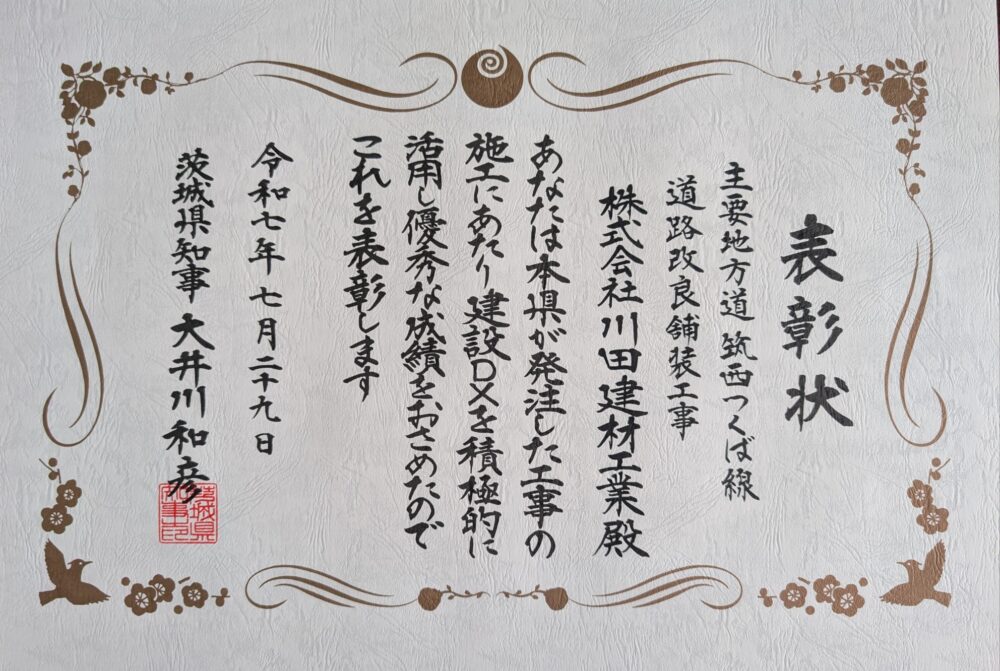 表彰状
主要地方道筑西つくば線
道路改良舗装工事
株式会社川田建材工業殿
あなたは本県が発注した工事の
施工にあたり建設DXを積極的に
活用し優秀な成績をおさめたので
これを表彰します
令和七年七月二十九日
茨城県知事 大井川和彦
茨城県
知事印